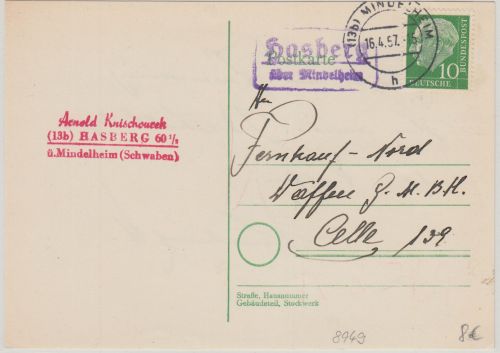 (13b) MINDELHEIM
16.4.57.
h
Hasberg
über Mindelheim
Postkarte
10
DEUTSCHE BUNDESPOST
Arnold Knischourek
(13b) HASBERG 60 1/2
ü.Mindelheim (Schwaben)
Fernkauf - Nord
Waffen G.M.B.H.
Celle 139
Straße, Hausnummer
Gebäudeteil, Stockwerk
8949
8€